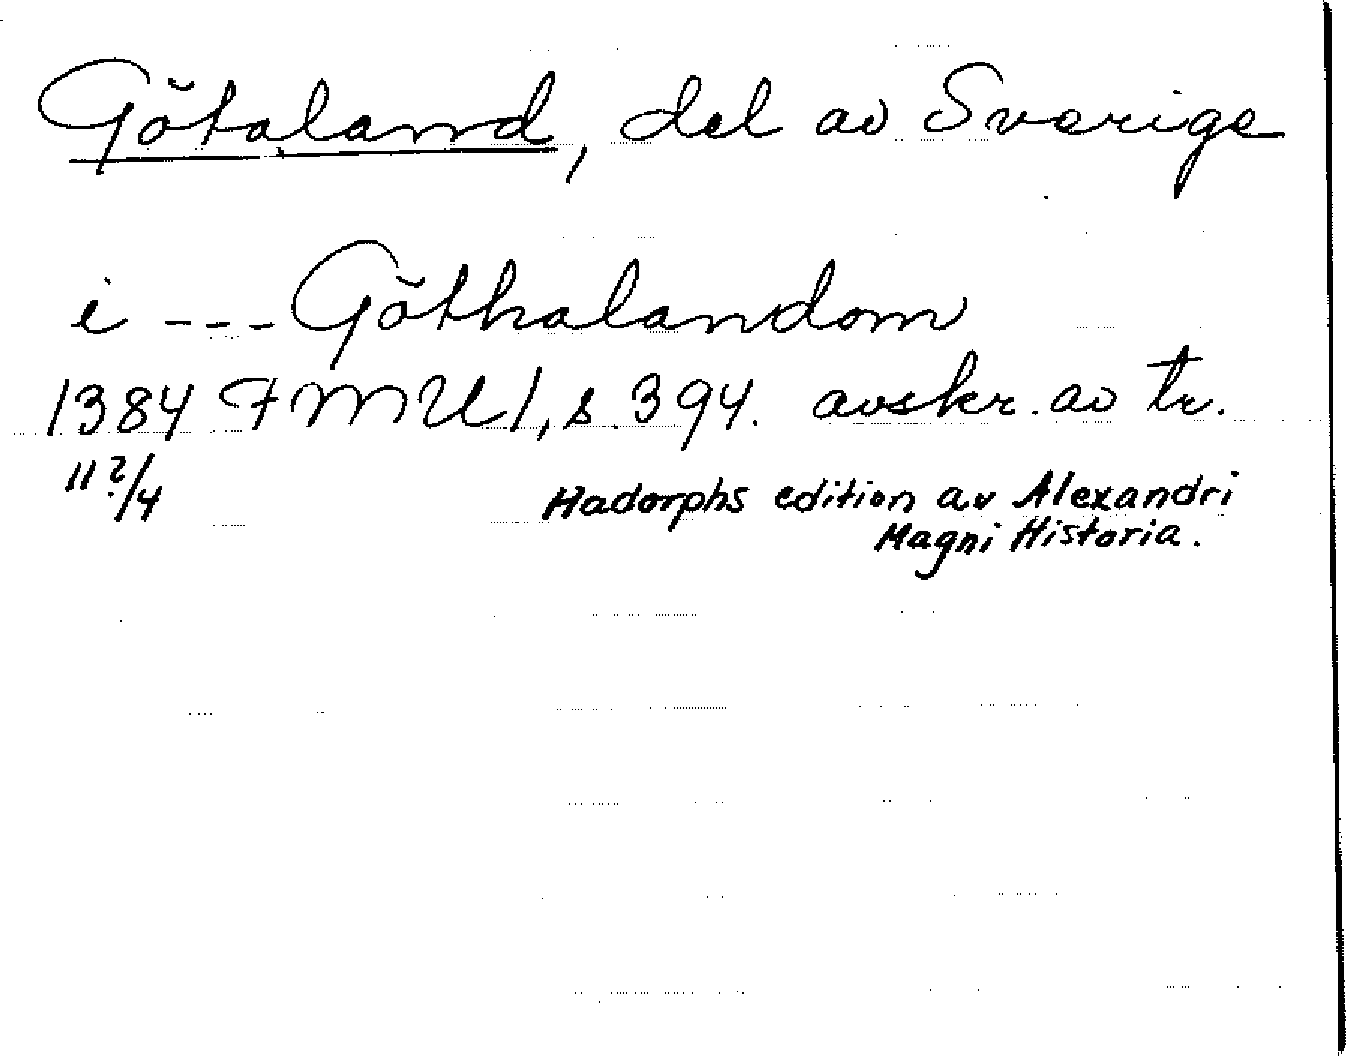 Götaland, del av Sverige
i --- Göthalandom
1384 FMU 1, s. 394. avskr. av tr.
11?/4 Hadorphs edition av Alexandri
Magni Historia.